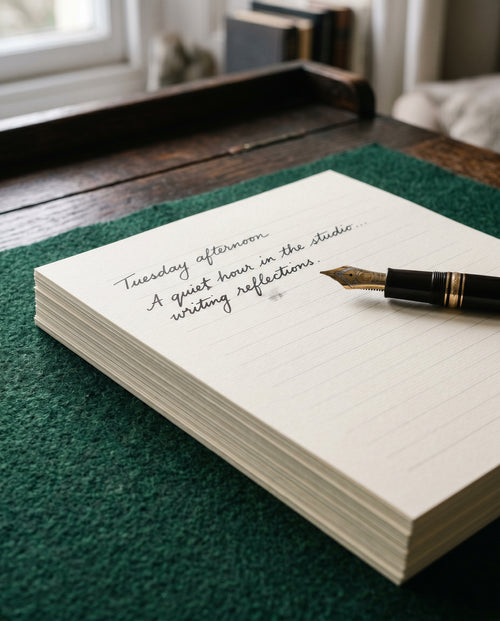 Tuesday afternoon
A quiet hour in the studio...
writing reflections.